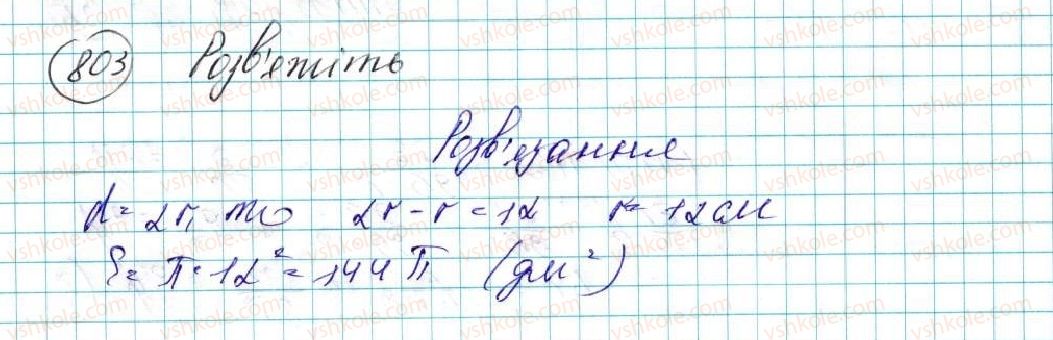 803 Розв'яжіть
Розв'язання
d = 2r, то 2r - r = 12 r = 12 см
S = π · 12² = 144 π (дм²)